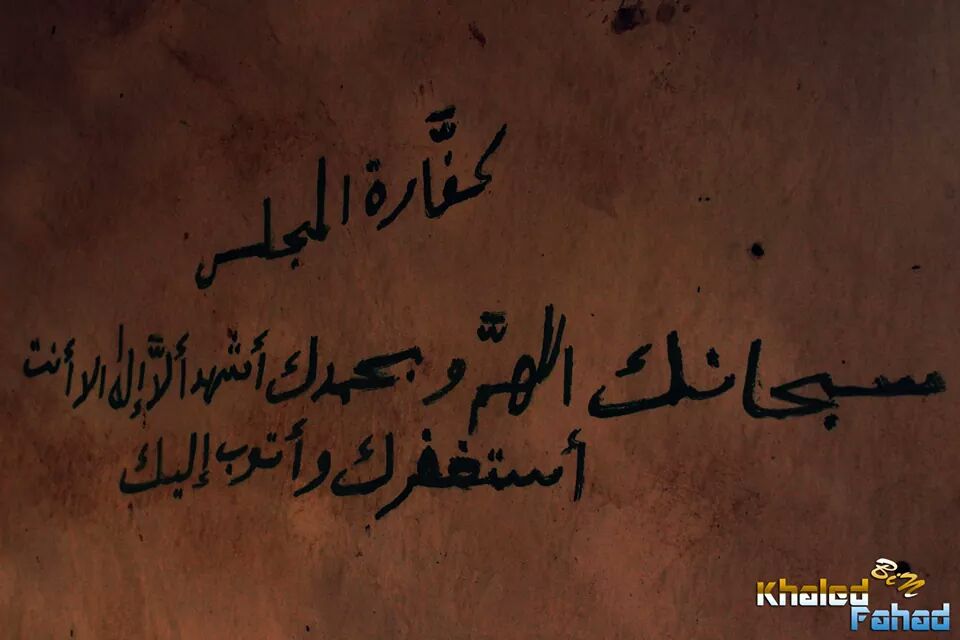 كفَّارة المجلس
سبحانك اللهمَّ وبحمدك أشهد ألاَّ إله الا أنت
أستغفرك وأتوب إليك
Khaled BiN Fahad